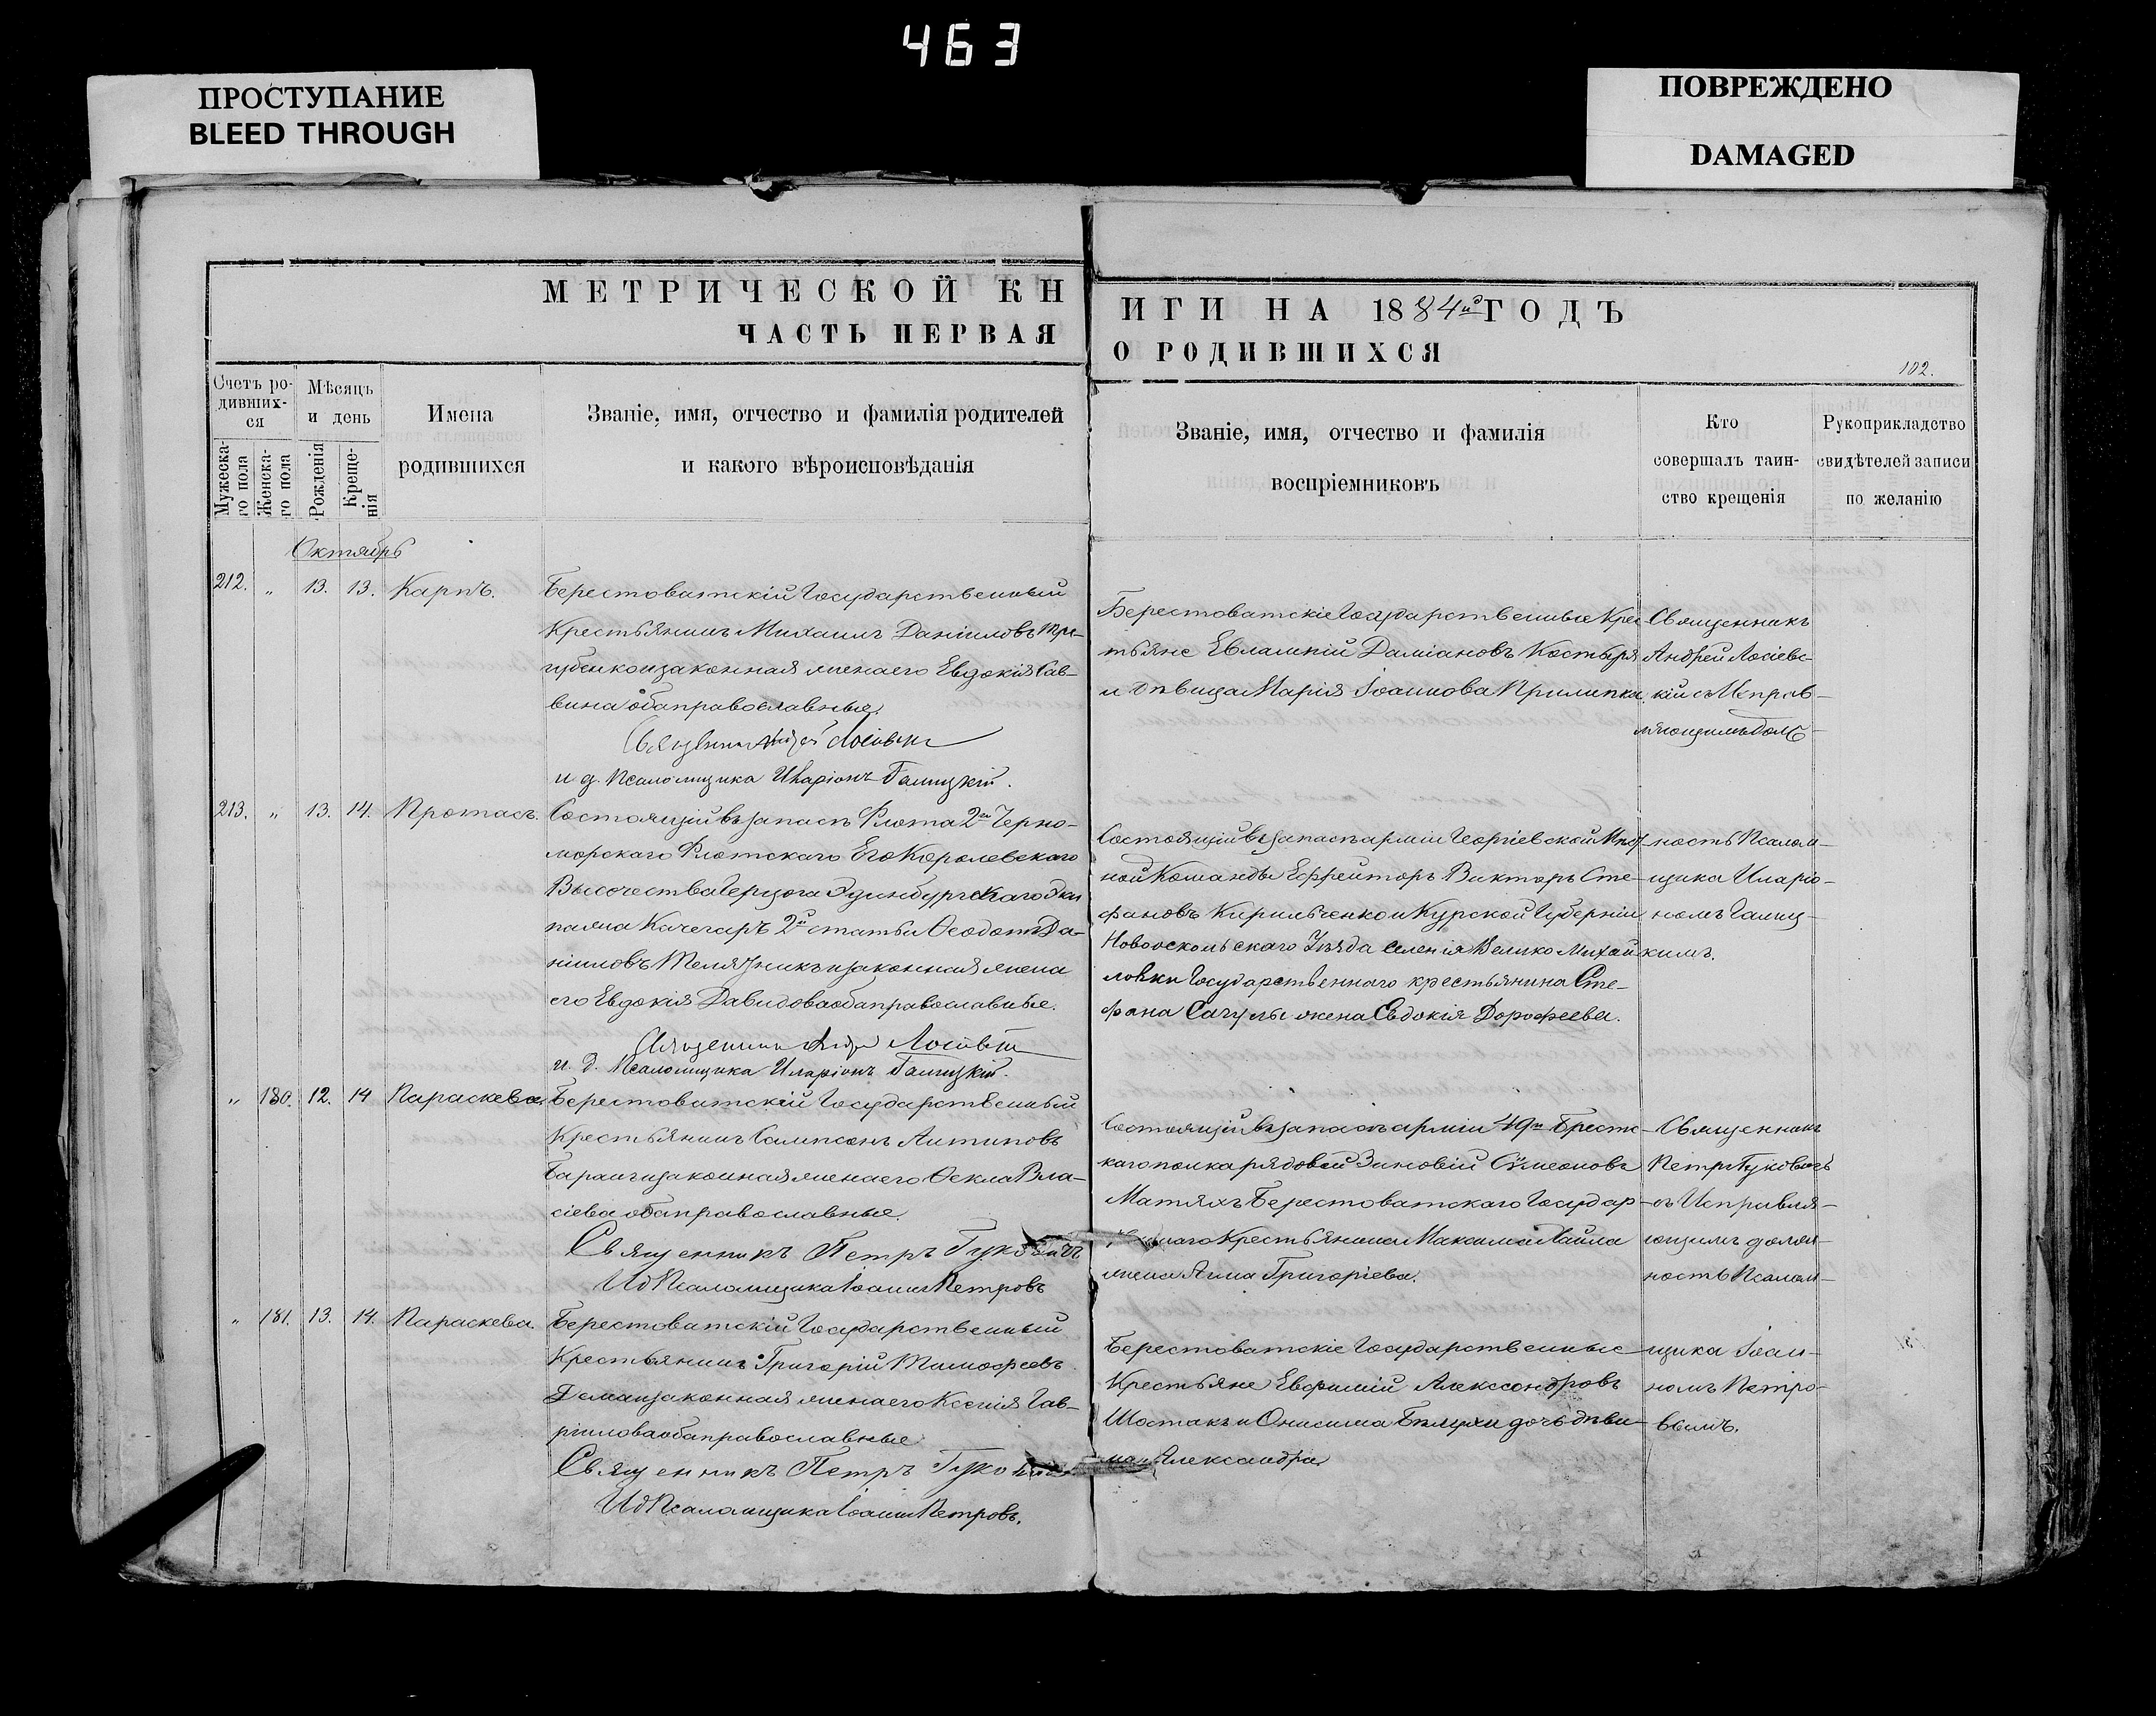 463
ПРОСТУПАНИЕ
BLEED THROUGH
ПОВРЕЖДЕНО
DAMAGED
МЕТРИЧЕСКОЙ КН
ЧАСТЬ ПЕРВАЯ
ИГИ НА 1884й ГОДЪ
О РОДИВШИХСЯ
102.
Счетъ ро-
дивших-
ся
Мужеска-
го пола
Женска-
го пола
Мѣсяцъ
и день
Рожденія
Креще-
нія
Имена
родившихся
Званіе, имя, отчество и фамилія родителей
и какого вѣроисповѣданія
Званіе, имя, отчество и фамилія
воспріемниковъ
Кто
совершалъ таин-
ство крещенія
Рукоприкладство
свидѣтелей записи
по желанію
Октябрь
212. „ 13. 13. Карпъ.
Берестоватскій Государственный
Крестьянинъ Михаилъ Даніиловъ Три-
губенко и законная жена его Евдокія Сав-
вина оба православные.
Священникъ Андрей Лосіевскі
и д. Псаломщика Иларіонъ Галицкій.
Берестоватскіе Государственные Крес-
тьяне Евлампій Даміановъ Костыря
и дѣвица Марія Іоаннова Прилипка.
Священникъ
Андрей Лосіевс-
кій съ Исправ-
ляющимъ долж-
213. „ 13. 14. Протасъ.
Состоящій въ запасѣ Флота 2го Черно-
морскаго Флотскаго Его Королевскаго
Высочества Герцога Эдинбургскаго Эки
пажа Кочегаръ 2й статьи Ѳеодотъ Да-
ніиловъ Телязникъ и законная жена
его Евдокія Давидова оба православные.
Священникъ Андрей Лосіевскі
и. д. Псаломщика Иларіонъ Галицкій.
Состоящій въ запасѣ арміи Георгіевской
ной Команды Ефрейторъ Викторъ Сте-
фановъ Кирильченко и Курской Губерніи
Новооскольскаго Уѣзда селенія Велико Михай
ловки Государственнаго крестьянина Сте-
фана жена Евдокія Дорофеева.
ность Псалом-
щика Иларіо-
номъ Галиц-
кимъ.
„ 180. 12. 14 Параскева.
Берестоватскій Государственный
Крестьянинъ Сампсонъ Антиповъ
Баранъ и законная жена его Ѳекла Вла-
сіева оба православные.
Священникъ Петръ Гуковичъ
Ид Псаломщика Іоаннъ Петровъ
Состоящій въ запасѣ арміи 49го Брестс-
каго полка рядовой Зиновій Сѵмеоновъ
Матяхъ Берестоватскаго Государ-
Крестьянина Максима
жена Анна Григоріева.
Священникъ
Петръ Гуковичъ
съ Исправля-
ющимъ долж-
ность Псалом-
„ 181. 13. 14. Параскева.
Берестоватскій Государственный
Крестьянинъ Григорій Тимофеевъ
и законная жена его Ксенія Гав-
ріилова оба православные
Священникъ Петръ Гуковичъ
Ид Псаломщика Іоаннъ Петровъ.
Берестоватскіе Государственные
Крестьяне Евфимій Александровъ
Шостакъ и Онисима дочь дѣви
ца Александра
щика Іоан-
номъ Петро-
вымъ.